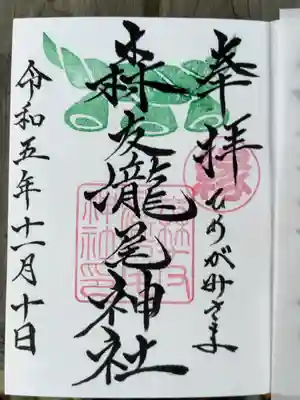 奉拝
縁
ひめがみさま
森友瀧尾神社
令和五年十一月十日